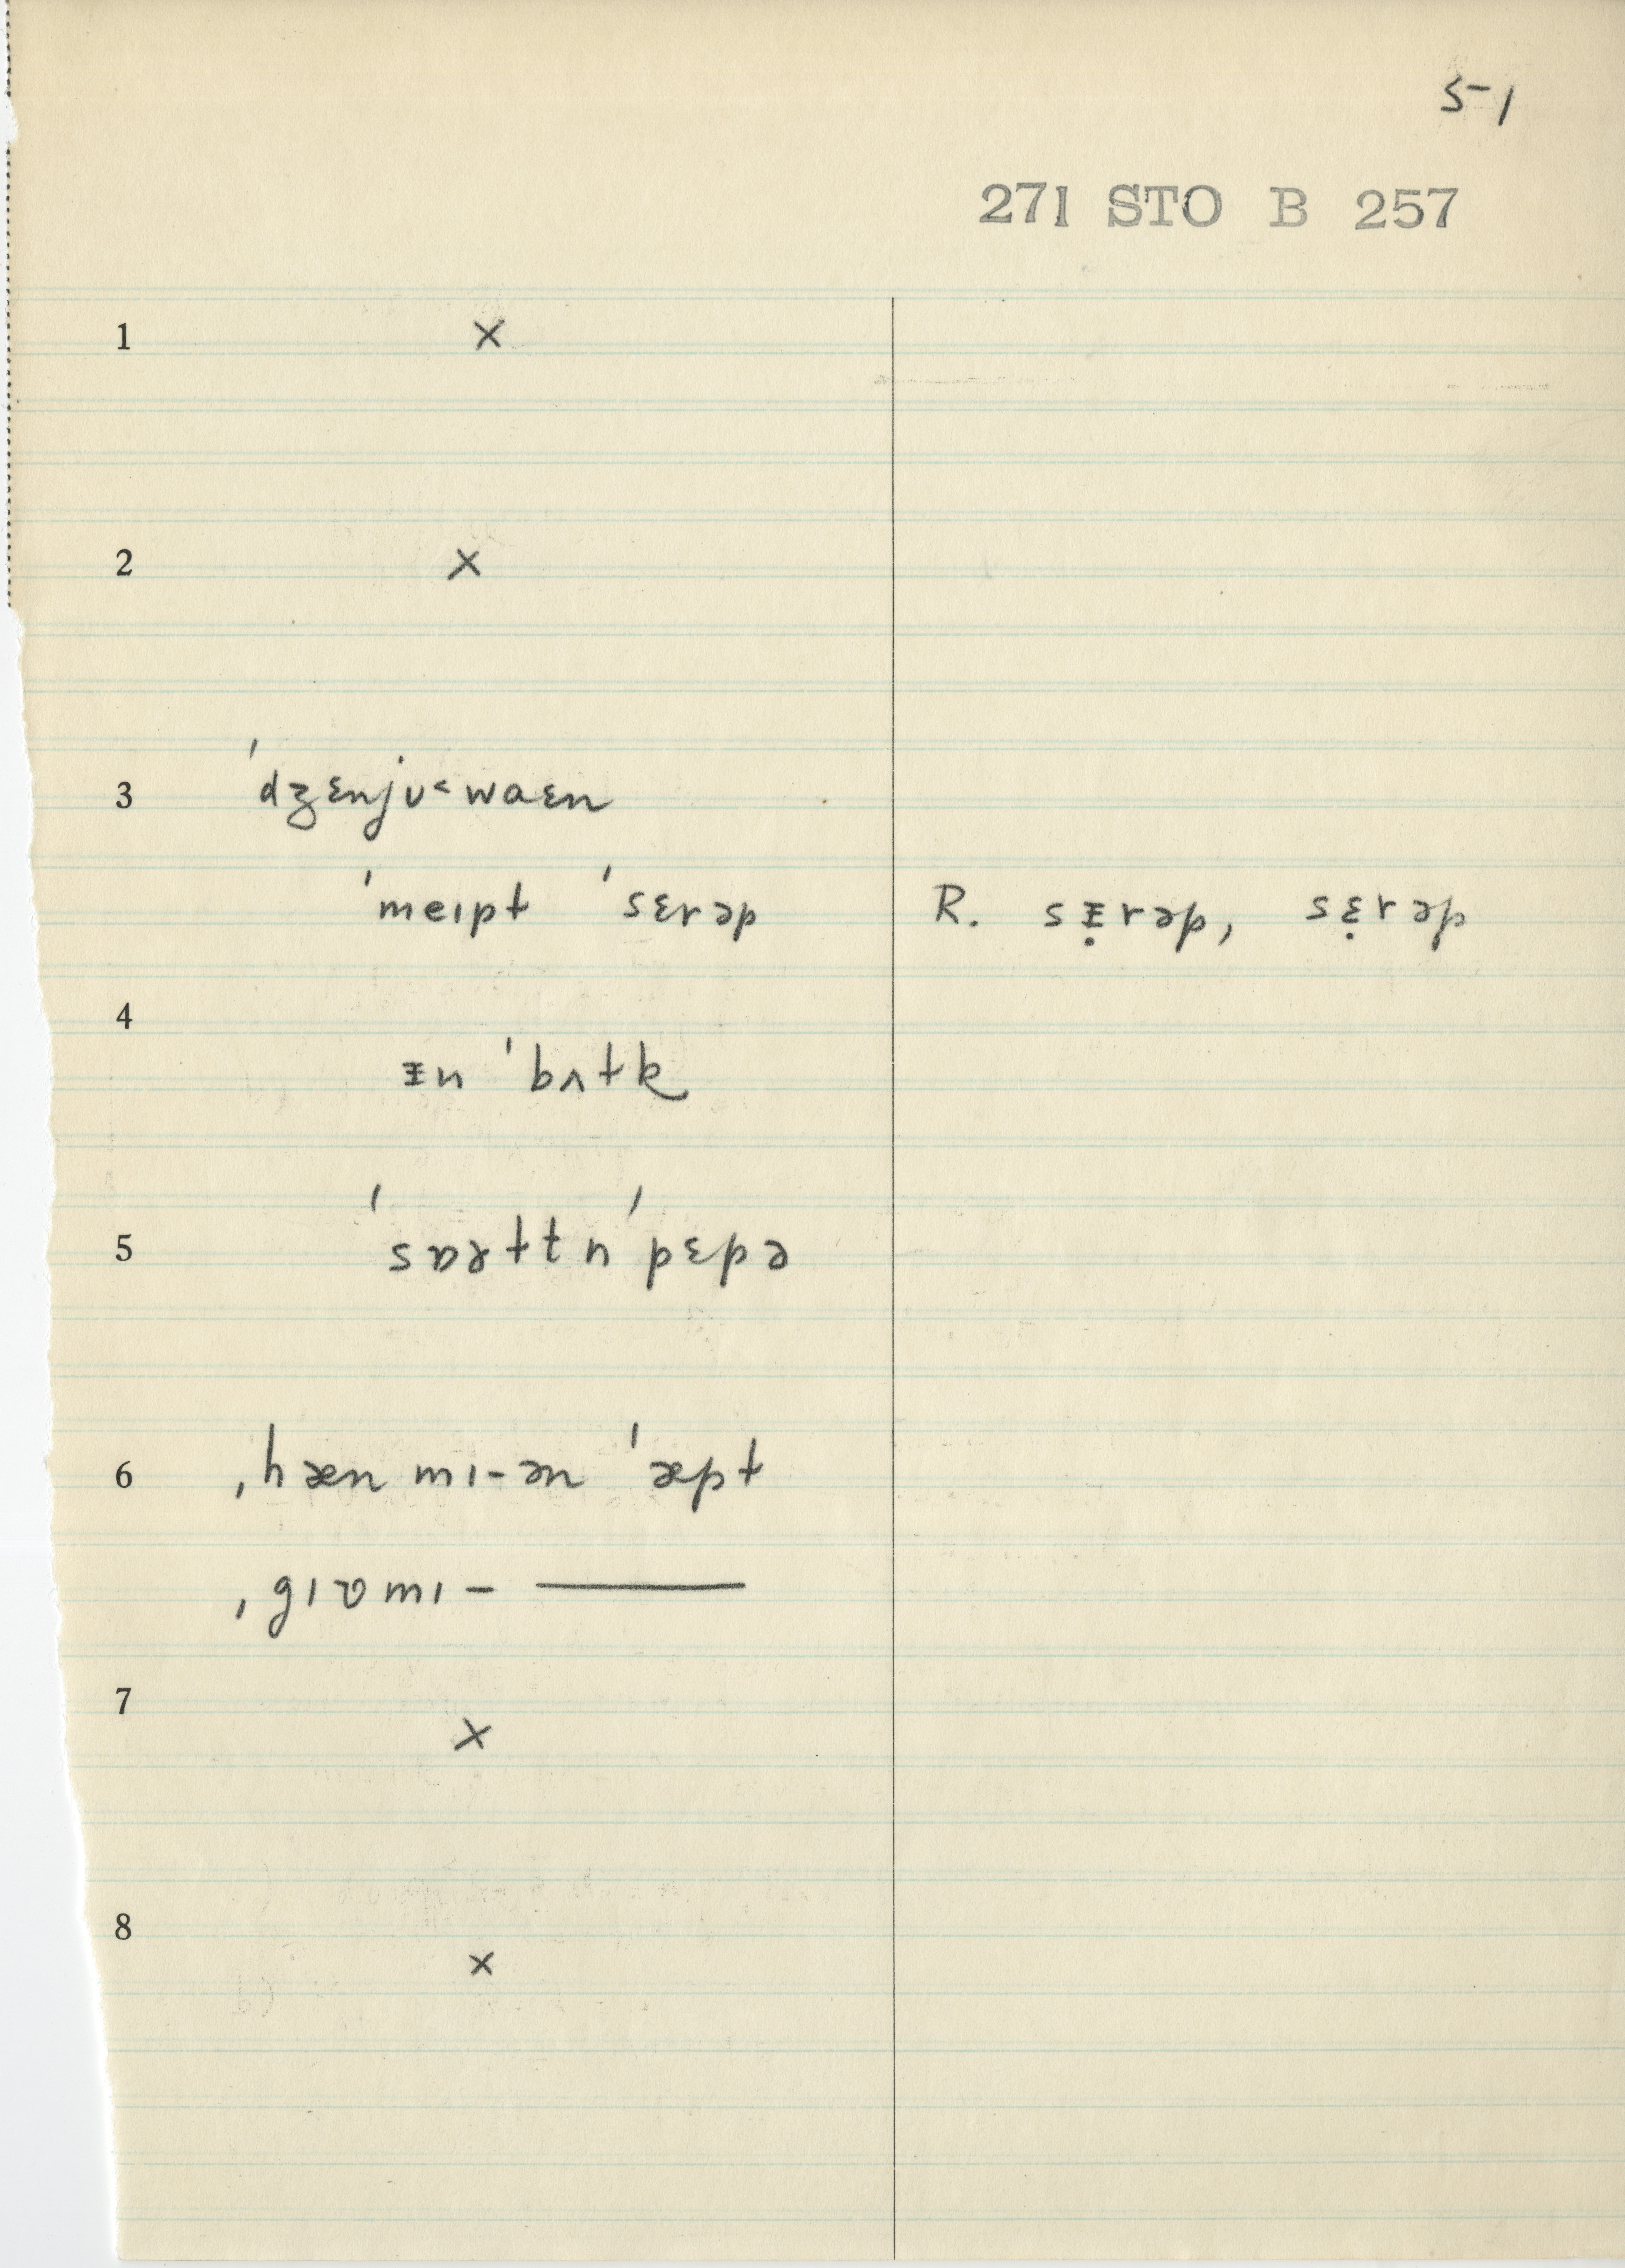 5-1
271 STO B 257
1 ×
2 ×
3 ˈdʒɛnjʊ˂waɛn
ˈmeɪpt ˈsɛrəp R. sᵻ̣rəp, sɛ̣rəp
4 ᵻn ˈbʌtk
5 ˈsɒɤttn ˈpɛpə
6 ˌhæn mɪ-æn ˈæpt
ˌgɪɒmɪ- ———
7 ×
8 ×